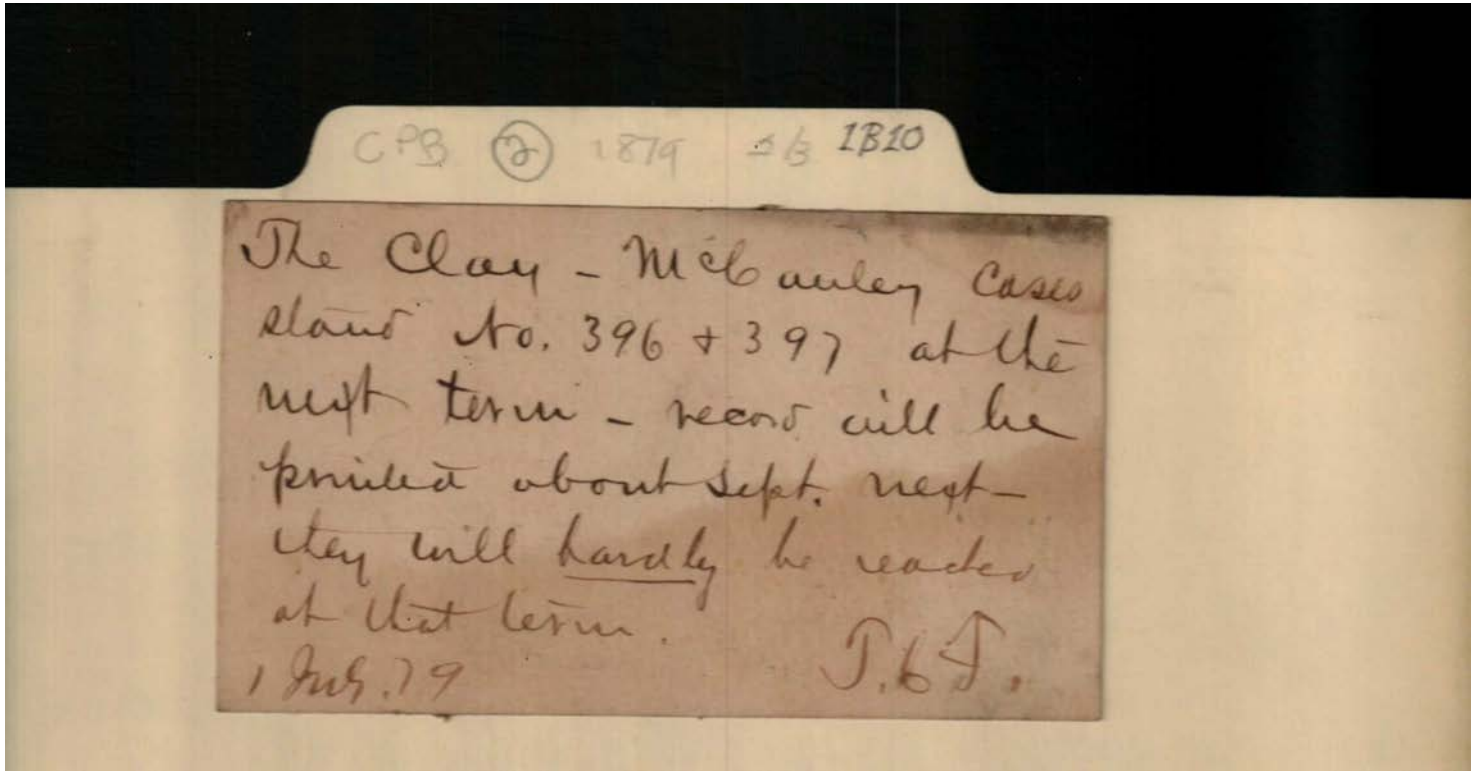 CPB 2 1879 IB10
The Clay - McCauley cases
stand No. 396 + 397 at the
next term - record will be
printed about Sept. next -
they will hardly be reached
at that term.
1 July. 79 T.C.T.